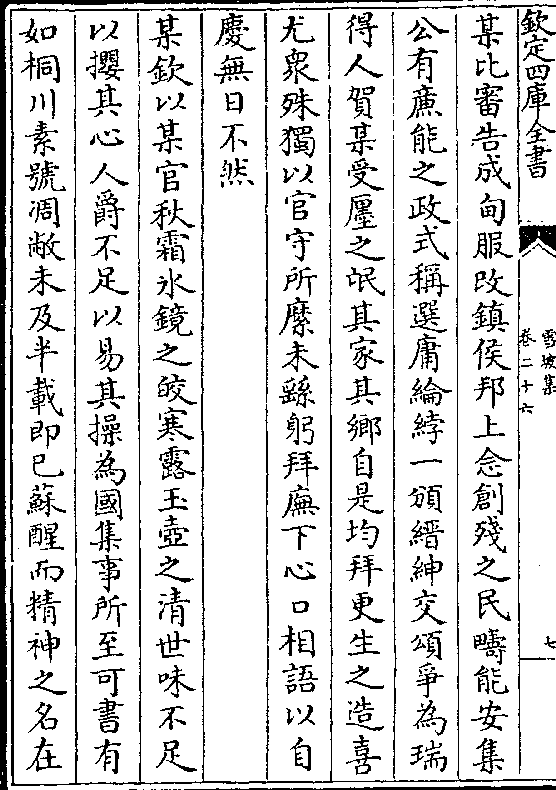 欽定四庫全書
雪坡集
卷二十六
七
某比審告成甸服改鎮侯邦上念創殘之民疇能安集
公有亷能之政式稱選庸綸綍一頒縉紳交頌爭為瑞
得人賀某受廛之氓其家其鄉自是均拜更生之造喜
尤衆殊獨以官守所縻未繇躬拜廡下心口相語以自
慶無日不然
某欽以某官秋霜氷鏡之皎寒露玉壺之清世味不足
以攖其心人爵不足以易其操為國集事所至可書有
如桐川素號凋敝未及半載即已蘇醒而精神之名在